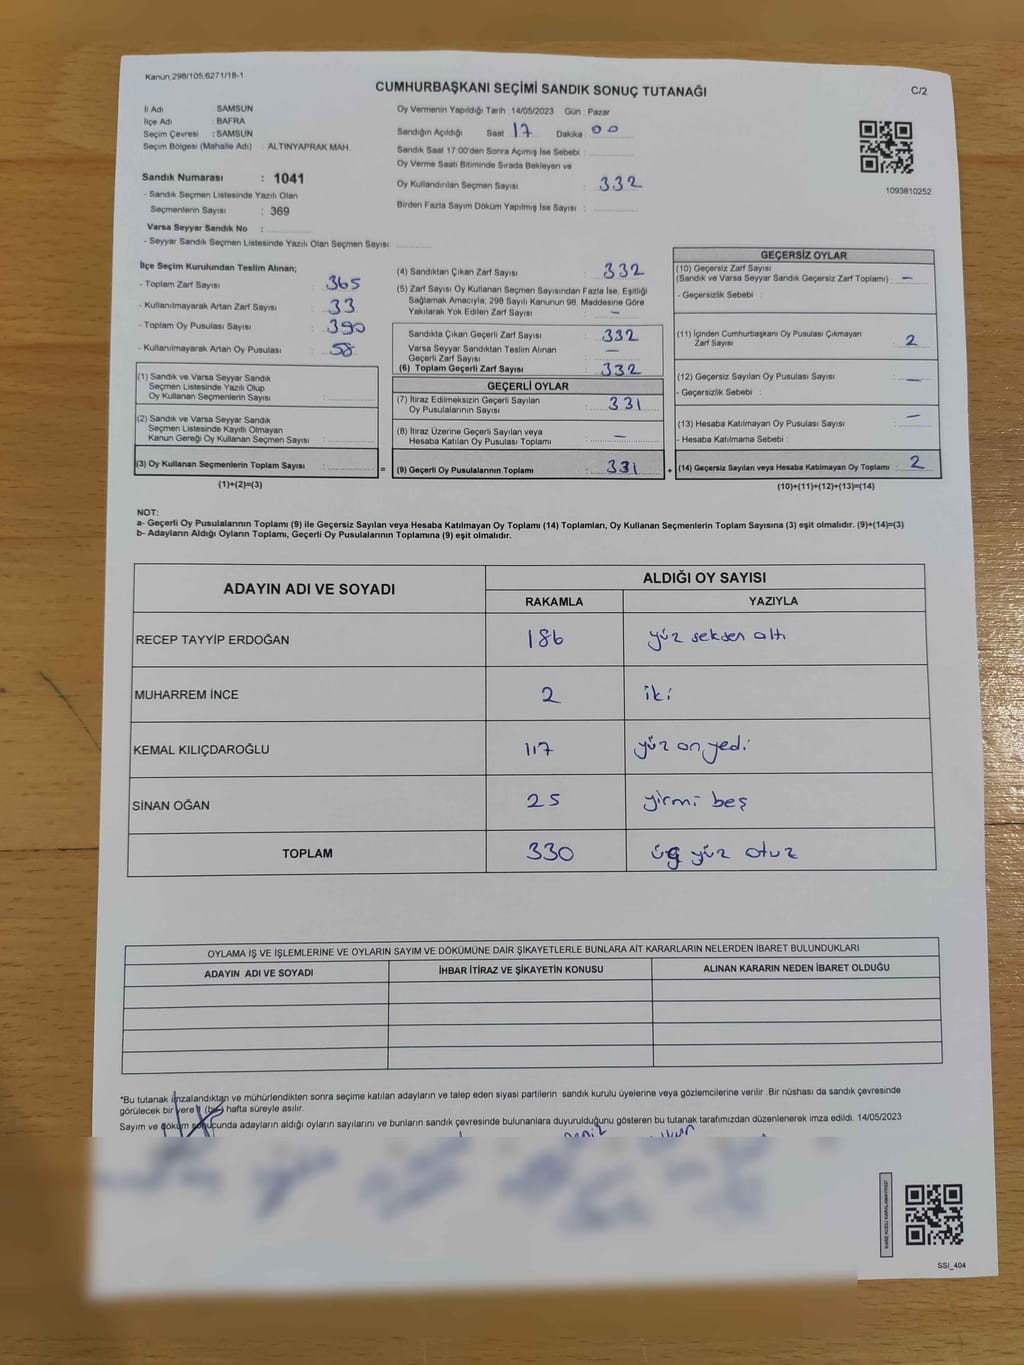 Kanun 298/105;6271/18-1
CUMHURBAŞKANI SEÇİMİ SANDIK SONUÇ TUTANAĞI
C/2
İl Adı SAMSUN
İlçe Adı : BAFRA
Seçim Çevresi : SAMSUN
Seçim Bölgesi (Mahalle Adı) : ALTINYAPRAK MAH.
Oy Vermenin Yapıldığı Tarih : 14/05/2023 Gün : Pazar
Sandığın Açıldığı Saat 17 Dakika : 00
Sandık Saat 17:00'den Sonra Açımış İse Sebebi :
Oy Verme Saati Bitiminde Sırada Bekleyen ve
Oy Kullandırılan Seçmen Sayısı : 332
Birden Fazla Sayım Döküm Yapılmış İse Sayısı :
1093810252
Sandık Numarası : 1041
- Sandık Seçmen Listesinde Yazılı Olan
Seçmenlerin Sayısı : 369
Varsa Seyyar Sandık No :
- Seyyar Sandık Seçmen Listesinde Yazılı Olan Seçmen Sayısı:
İlçe Seçim Kurulundan Teslim Alınan;
- Toplam Zarf Sayısı : 365
- Kullanılmayarak Artan Zarf Sayısı : 33
- Toplam Oy Pusulası Sayısı : 390
- Kullanılmayarak Artan Oy Pusulası : 58
(1) Sandık ve Varsa Seyyar Sandık
Seçmen Listesinde Yazılı Olup
Oy Kullanan Seçmenlerin Sayısı :
(2) Sandık ve Varsa Seyyar Sandık
Seçmen Listesinde Kayıtlı Olmayan
Kanun Gereği Oy Kullanan Seçmen Sayısı :
(3) Oy Kullanan Seçmenlerin Toplam Sayısı :
(1)+(2)=(3)
=
(4) Sandıktan Çıkan Zarf Sayısı : 332
(5) Zarf Sayısı Oy Kullanan Seçmen Sayısından Fazla İse, Eşitliği
Sağlamak Amacıyla; 298 Sayılı Kanunun 98. Maddesine Göre
Yakılarak Yok Edilen Zarf Sayısı : -
Sandıkta Çıkan Geçerli Zarf Sayısı : 332
Varsa Seyyar Sandıktan Teslim Alınan
Geçerli Zarf Sayısı : -
(6) Toplam Geçerli Zarf Sayısı : 332
GEÇERLİ OYLAR
(7) İtiraz Edilmeksizin Geçerli Sayılan
Oy Pusulalarının Sayısı : 331
(8) İtiraz Üzerine Geçerli Sayılan veya
Hesaba Katılan Oy Pusulası Toplamı : -
(9) Geçerli Oy Pusulalarının Toplamı : 331
+
GEÇERSİZ OYLAR
(10) Geçersiz Zarf Sayısı
(Sandık ve Varsa Seyyar Sandık Geçersiz Zarf Toplamı) : -
- Geçersizlik Sebebi :
(11) İçinden Cumhurbaşkanı Oy Pusulası Çıkmayan
Zarf Sayısı : 2
(12) Geçersiz Sayılan Oy Pusulası Sayısı : -
- Geçersizlik Sebebi :
(13) Hesaba Katılmayan Oy Pusulası Sayısı : -
- Hesaba Katılmama Sebebi :
(14) Geçersiz Sayılan veya Hesaba Katılmayan Oy Toplamı : 2
(10)+(11)+(12)+(13)=(14)
NOT:
a- Geçerli Oy Pusulalarının Toplamı (9) ile Geçersiz Sayılan veya Hesaba Katılmayan Oy Toplamı (14) Toplamları, Oy Kullanan Seçmenlerin Toplam Sayısına (3) eşit olmalıdır. (9)+(14)=(3)
b- Adayların Aldığı Oyların Toplamı, Geçerli Oy Pusulalarının Toplamına (9) eşit olmalıdır.
ADAYIN ADI VE SOYADI ALDIĞI OY SAYISI
RAKAMLA YAZIYLA
RECEP TAYYİP ERDOĞAN 186 yüz seksen altı
MUHARREM İNCE 2 iki
KEMAL KILIÇDAROĞLU 117 yüz on yedi
SİNAN OĞAN 25 yirmi beş
TOPLAM 330 üç yüz otuz
OYLAMA İŞ VE İŞLEMLERİNE VE OYLARIN SAYIM VE DÖKÜMÜNE DAİR ŞİKAYETLERLE BUNLARA AİT KARARLARIN NELERDEN İBARET BULUNDUKLARI
ADAYIN ADI VE SOYADI İHBAR İTİRAZ VE ŞİKAYETİN KONUSU ALINAN KARARIN NEDEN İBARET OLDUĞU
*Bu tutanak imzalandıktan ve mühürlendikten sonra seçime katılan adayların ve talep eden siyasi partilerin sandık kurulu üyelerine veya gözlemcilerine verilir. Bir nüshası da sandık çevresinde
görülecek bir yere 1 (bir) hafta süreyle asılır.
Sayım ve döküm sonucunda adayların aldığı oyların sayılarını ve bunların sandık çevresinde bulunanlara duyurulduğunu gösteren bu tutanak tarafımızdan düzenlenerek imza edildi. 14/05/2023
KARE KODU KARALAMAYINIZ!
SSI_404